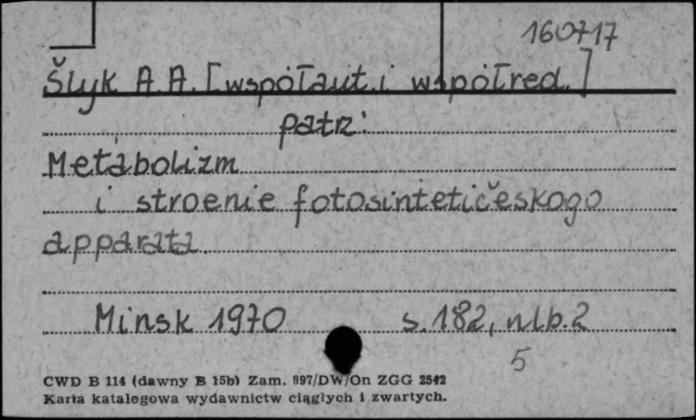 160717
Šlyk A.A. [współaut. i współred.]
patrz:
Metabolizm
i stroenie fotosintetičeskogo
apparata.
Minsk 1970 s. 182, nlb. 2
5
CWD B 114 (dawny B 15b) Zam. 897/DW/On ZGG 2542
Karta katalogowa wydawnictw ciągłych i zwartych.